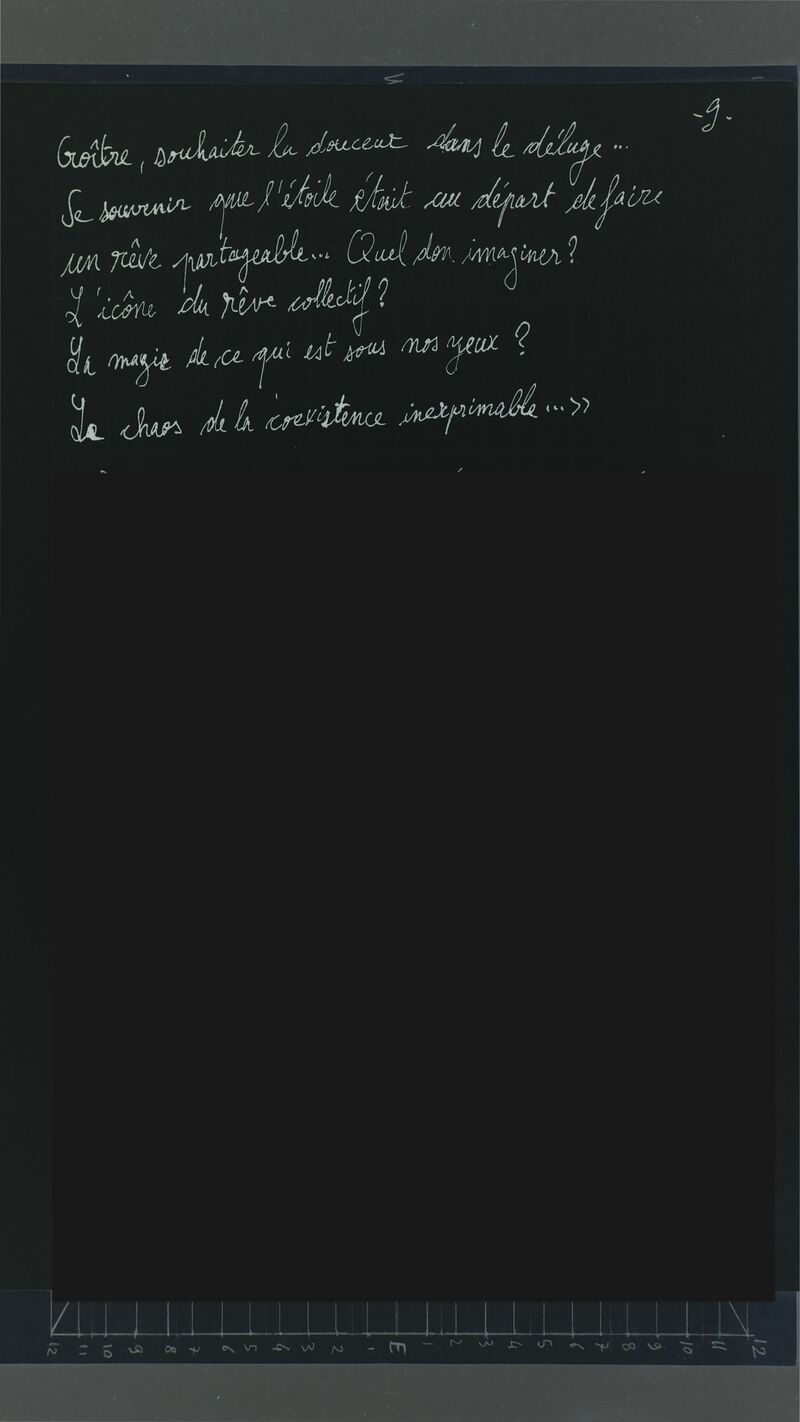 -9.
Croître, souhaiter la douceur dans le déluge...
Se souvenir que l'étoile était au départ de faire
un rêve partageable... Quel don imaginer?
L'icône du rêve collectif?
La magie de ce qui est sous nos yeux ?
Le chaos de la coexistence inexprimable...>>
12 11 10 9 8 7 6 5 4 3 2 1 E 1 2 3 4 5 6 7 8 9 10 11 12